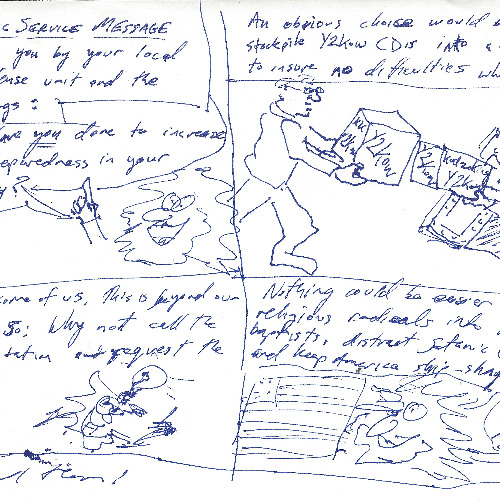 C SERVICE MESSAGE
you by your local
ense unit and the
ngs:
have you done to increase
eparedness in your
y?
An obvious choice would
stockpile Y2Kow CDis into a
to insure no difficulties wh
Y2Kow
Y2Kow
Y2Kow
ome of us, This is beyond our
So: Why not call the
tation and request the
Nothing could be easier
religious radicals into
baptists, distract Satanic
and keep America ship-shap